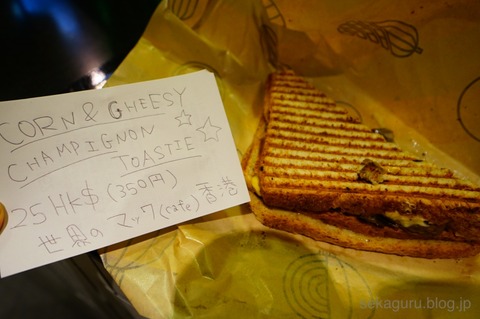 CORN & GHEESY
CHAMPIGNON
TOASTIE
25 HK$ (350円)
世界のマック(cafe) 香港
sekaguru.blog.jp